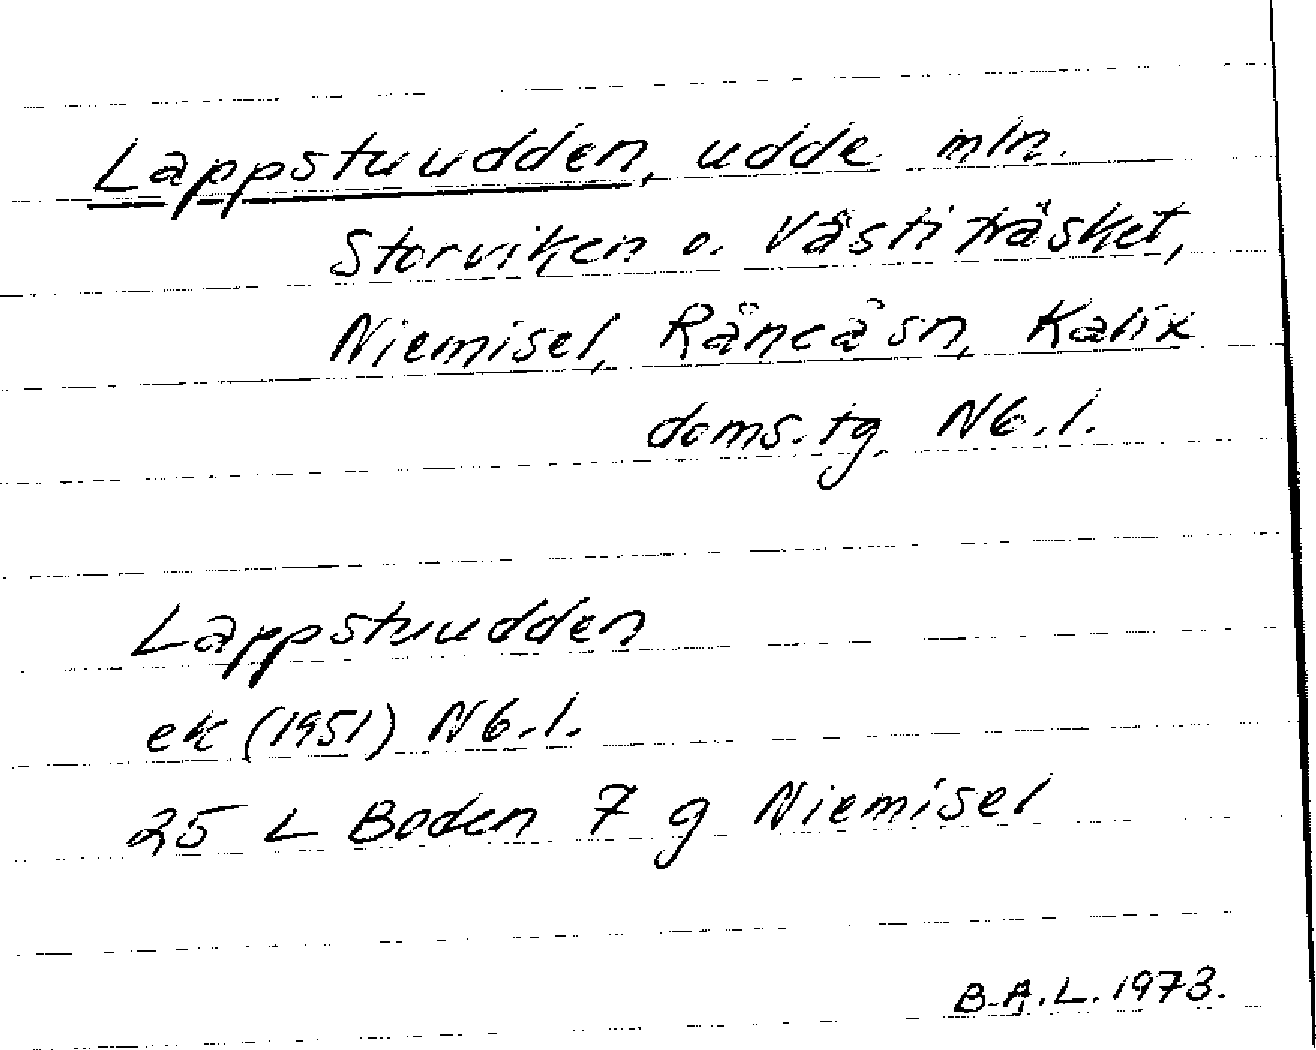 Lappstuudden, udde mln.
Storviken o. Västiträsket,
Niemisel, Råneå sn, Kalix
doms. tg. Nb. l.
Lappstuudden
ek (1951) Nb. l.
25 L Boden 7 g Niemisel
B.A.L. 1973.